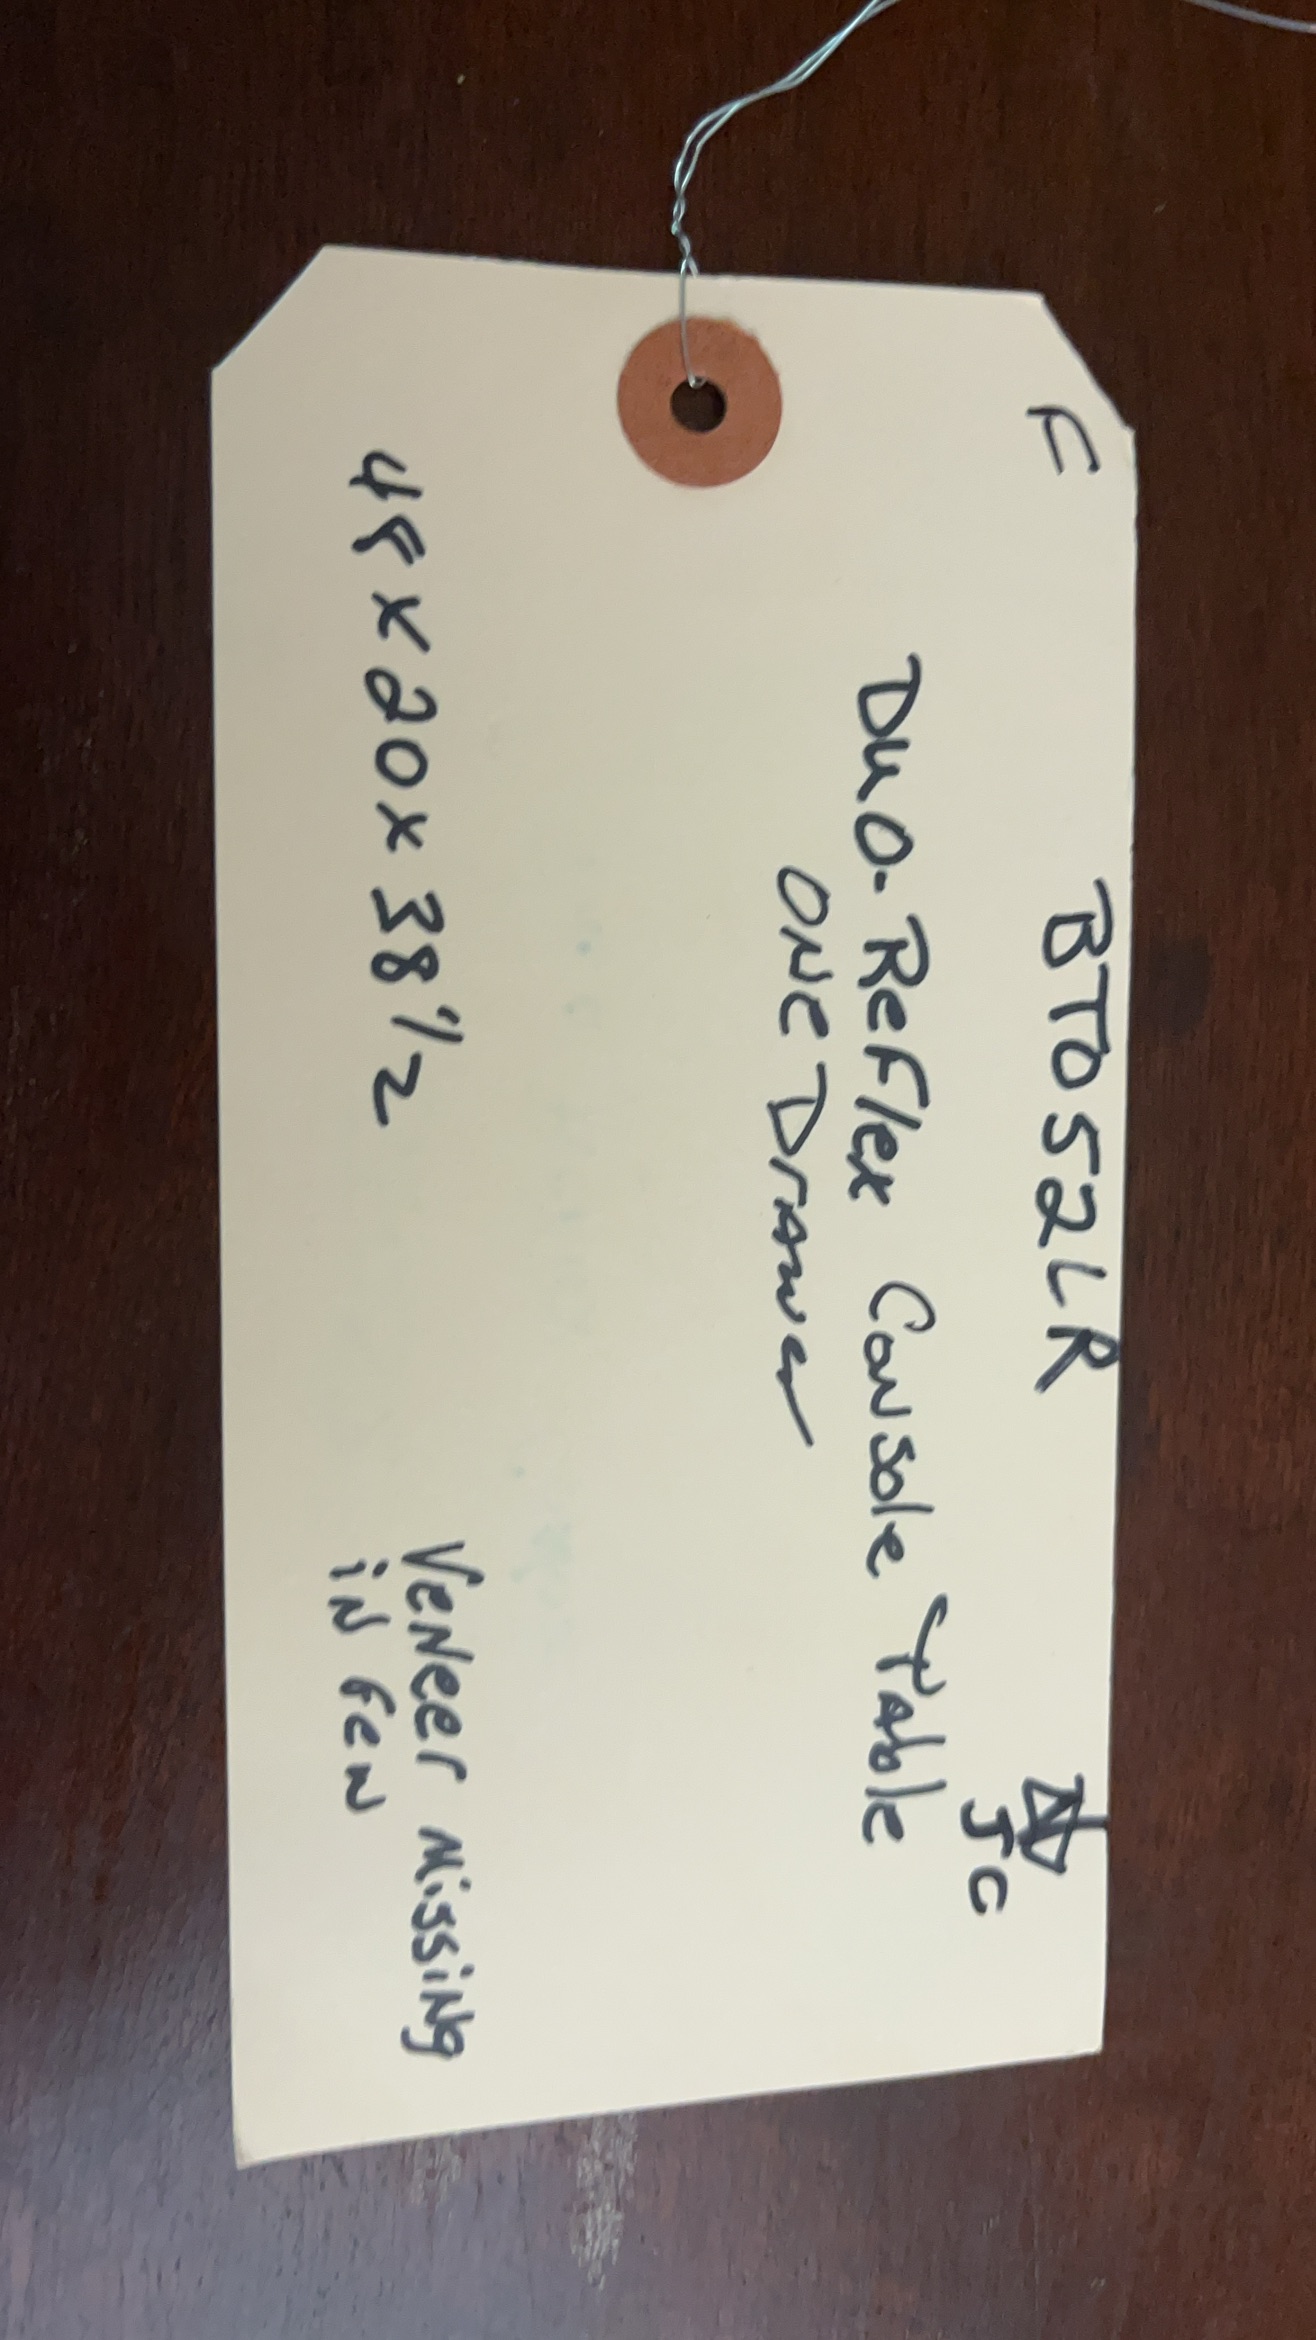 F BT052LR
JC
Duo-Reflex Console Table
ONE Drawer
48 x 20 x 38 1/2
Veneer missing
in few